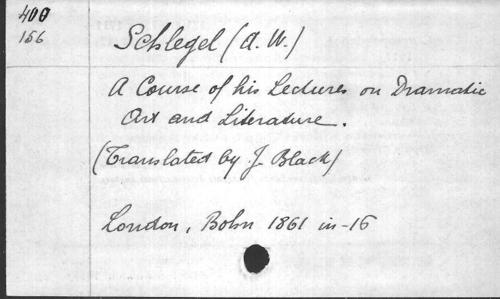 400
156
Schlegel (A. W.)
A Course of his Lectures on Dramatic
Art and Literature.
(Translated by J. Black)
London, Bohn 1861 in-16